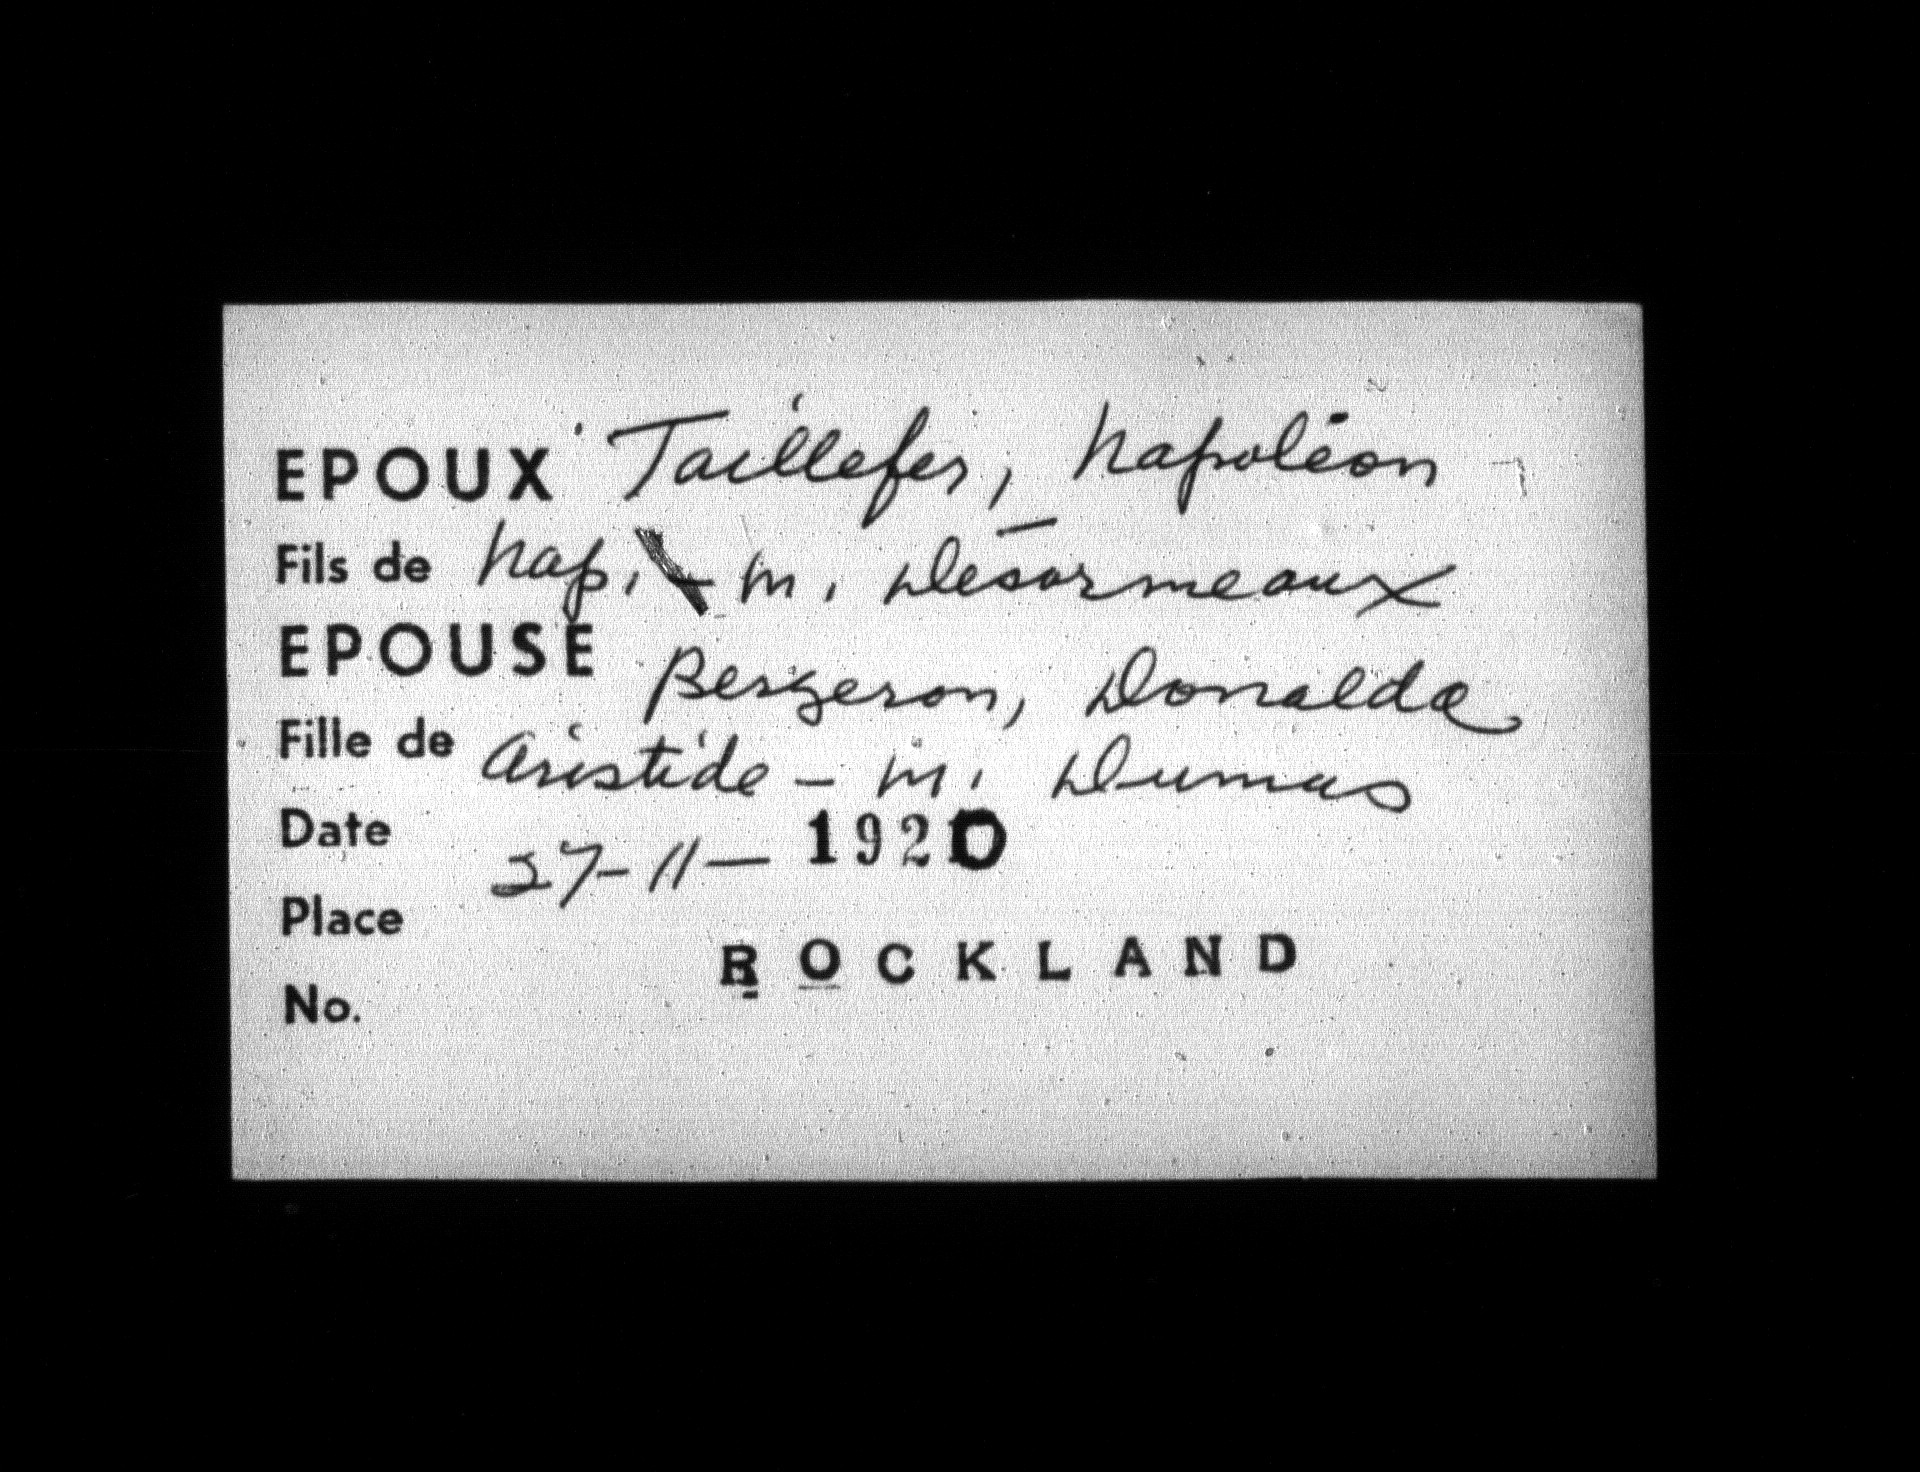 EPOUX Taillefer, Napoléon
Fils de Nap. - m. Désormeaux
EPOUSE Bergeron, Donalda
Fille de Aristide - m. Dumas
Date 27-11- 1920
Place ROCKLAND
No.